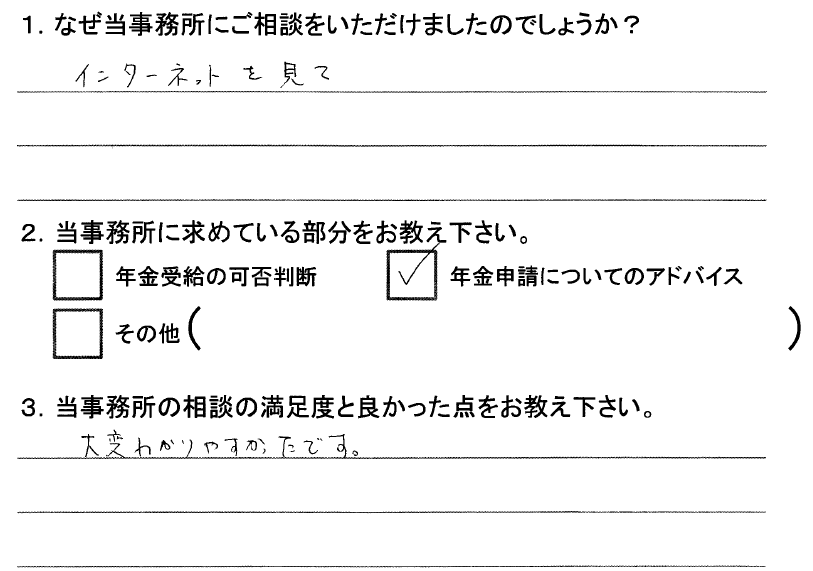 1．なぜ当事務所にご相談をいただけましたのでしょうか？
インターネットを見て
2．当事務所に求めている部分をお教え下さい。
年金受給の可否判断 年金申請についてのアドバイス
その他（ ）
3．当事務所の相談の満足度と良かった点をお教え下さい。
大変わかりやすかったです。